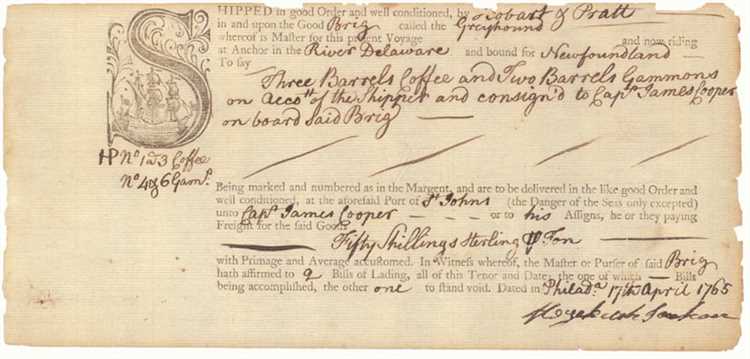 SHIPPED in good Order and well conditioned, by Hobart & Pratt
in and upon the Good Brig called the Greyhound
whereof is Master for this present Voyage and now riding
at Anchor in the River Delaware and bound for Newfoundland
To say
Three Barrels Coffee and Two Barrels Gammons
on Accott. of the Shipper and consign'd to Capt. James Cooper
on board said Brig
HP No. 1 a 3 Coffee
No. 4 & 6 Gams.
Being marked and numbered as in the Margent, and are to be delivered in the like good Order and
well conditioned, at the aforesaid Port of St. Johns (the Danger of the Seas only excepted)
unto Capt. James Cooper or to his Assigns, he or they paying
Freight for the said Goods
Fifty Shillings Sterling ⅌ Ton
with Primage and Average accustomed. In Witness whereof, the Master or Purser of said Brig
hath affirmed to 2 Bills of Lading, all of this Tenor and Date; the one of which Bills
being accomplished, the other one to stand void. Dated in Philada. 17th April 1765